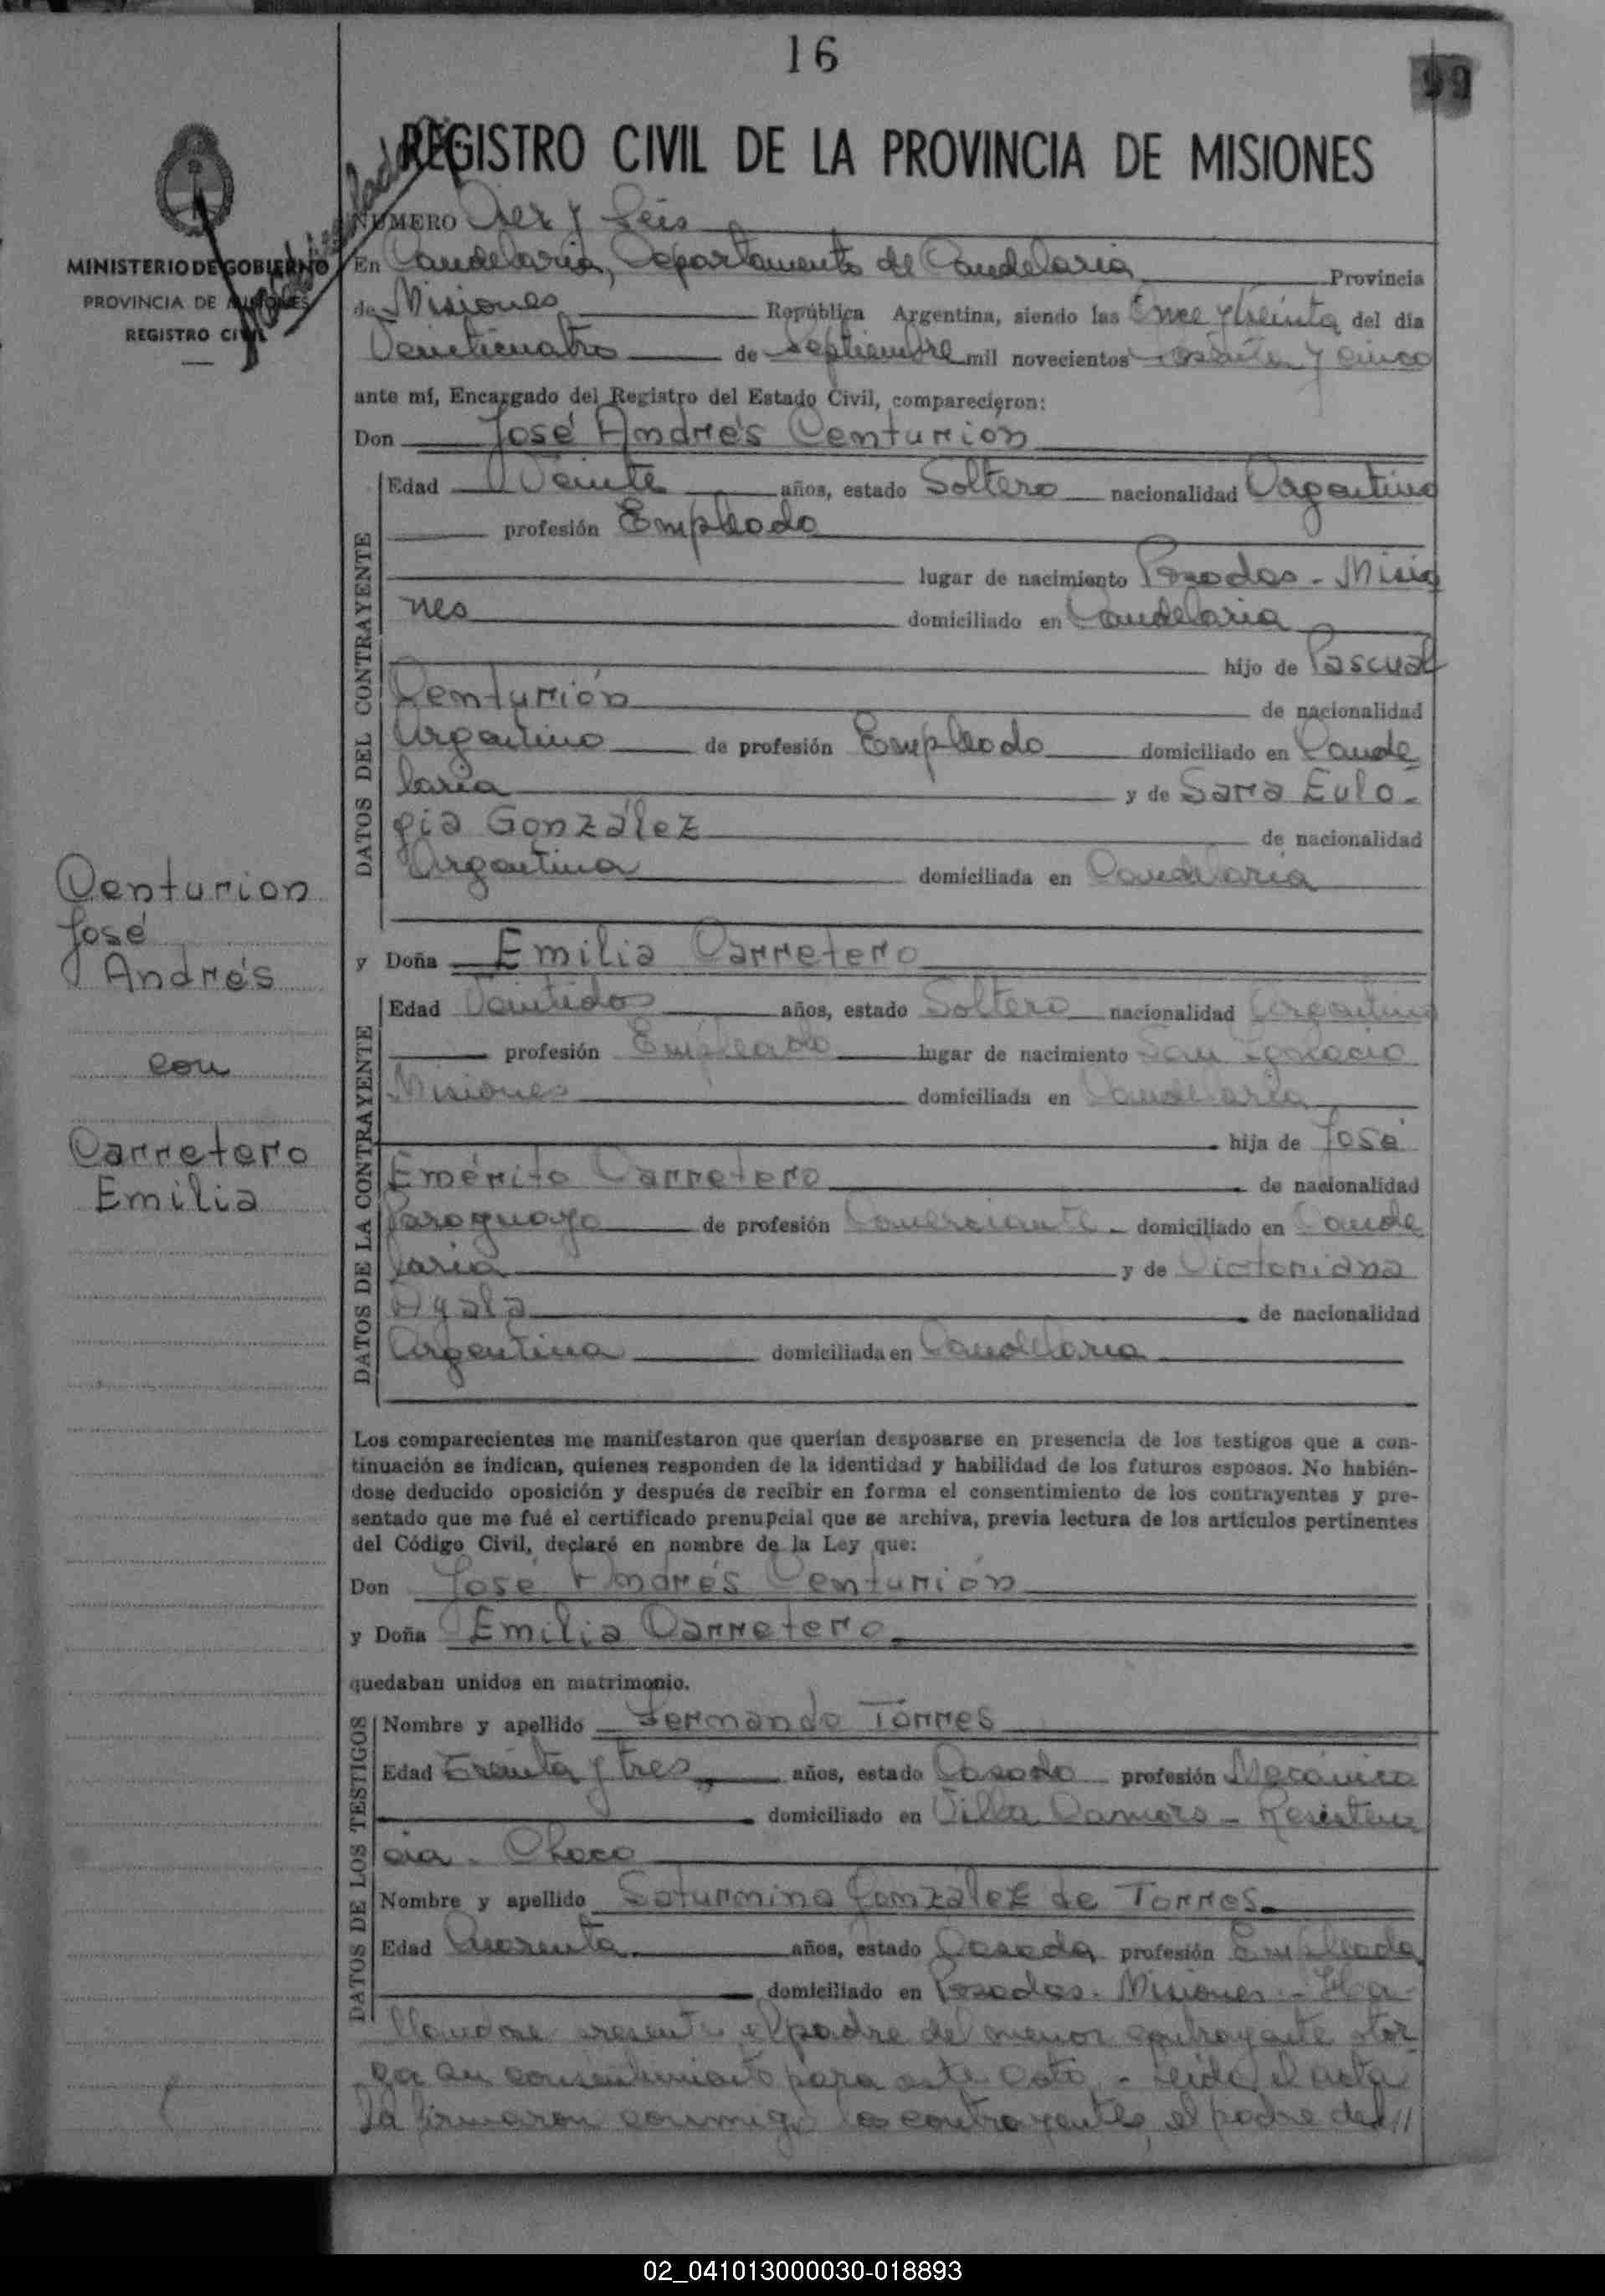 16
99
REGISTRO CIVIL DE LA PROVINCIA DE MISIONES
MINISTERIO DE GOBIERNO
PROVINCIA DE MISIONES
REGISTRO CIVIL
NUMERO Diez y Seis
En Candelaria, Departamento de Candelaria Provincia
de Misiones República Argentina, siendo las Once y treinta del día
Veinticuatro de Septiembre mil novecientos sesenta y cinco
ante mí, Encargado del Registro del Estado Civil, comparecieron:
Don José Andrés Centurión
DATOS DEL CONTRAYENTE
Edad Veinte años, estado Soltero nacionalidad Argentino
profesión Empleado
lugar de nacimiento Posadas - Misio
nes domiciliado en Candelaria
hijo de Pascual
Centurión de nacionalidad
Argentino de profesión Empleado domiciliado en Cande
laria y de Sara Eulo-
gia González de nacionalidad
Argentina domiciliada en Candelaria
Centurion
José
Andrés
con
Carretero
Emilia
y Doña Emilia Carretero
DATOS DE LA CONTRAYENTE
Edad Veintidos años, estado Soltera nacionalidad Argentina
profesión Empleada lugar de nacimiento San Ignacio
Misiones domiciliada en Candelaria
hija de José
Emérito Carretero de nacionalidad
Paraguayo de profesión Comerciante - domiciliado en Cande
laria y de Victoriana
Ayala de nacionalidad
Argentina domiciliada en Candelaria
Los comparecientes me manifestaron que querían desposarse en presencia de los testigos que a con-
tinuación se indican, quienes responden de la identidad y habilidad de los futuros esposos. No habién-
dose deducido oposición y después de recibir en forma el consentimiento de los contrayentes y pre-
sentado que me fué el certificado prenupcial que se archiva, previa lectura de los artículos pertinentes
del Código Civil, declaré en nombre de la Ley que:
Don José Andrés Centurión
y Doña Emilia Carretero
quedaban unidos en matrimonio.
DATOS DE LOS TESTIGOS
Nombre y apellido Fernando Torres
Edad Treinta y tres años, estado Casado profesión Mecánico
domiciliado en Villa - Resisten
cia - Chaco
Nombre y apellido Saturnina González de Torres
Edad Cuarenta años, estado Casada profesión Empleada
domiciliado en Posadas - Misiones - Ha-
llandose presente el padre del menor contrayente otor
ga su consentimiento para este acto - Leida el acta
la firmaron conmigo los contrayentes, el padre del //
02_041013000030-018893